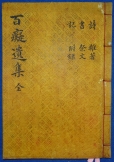 詩 雜著
書 祭文
附錄
百癡遺集 全